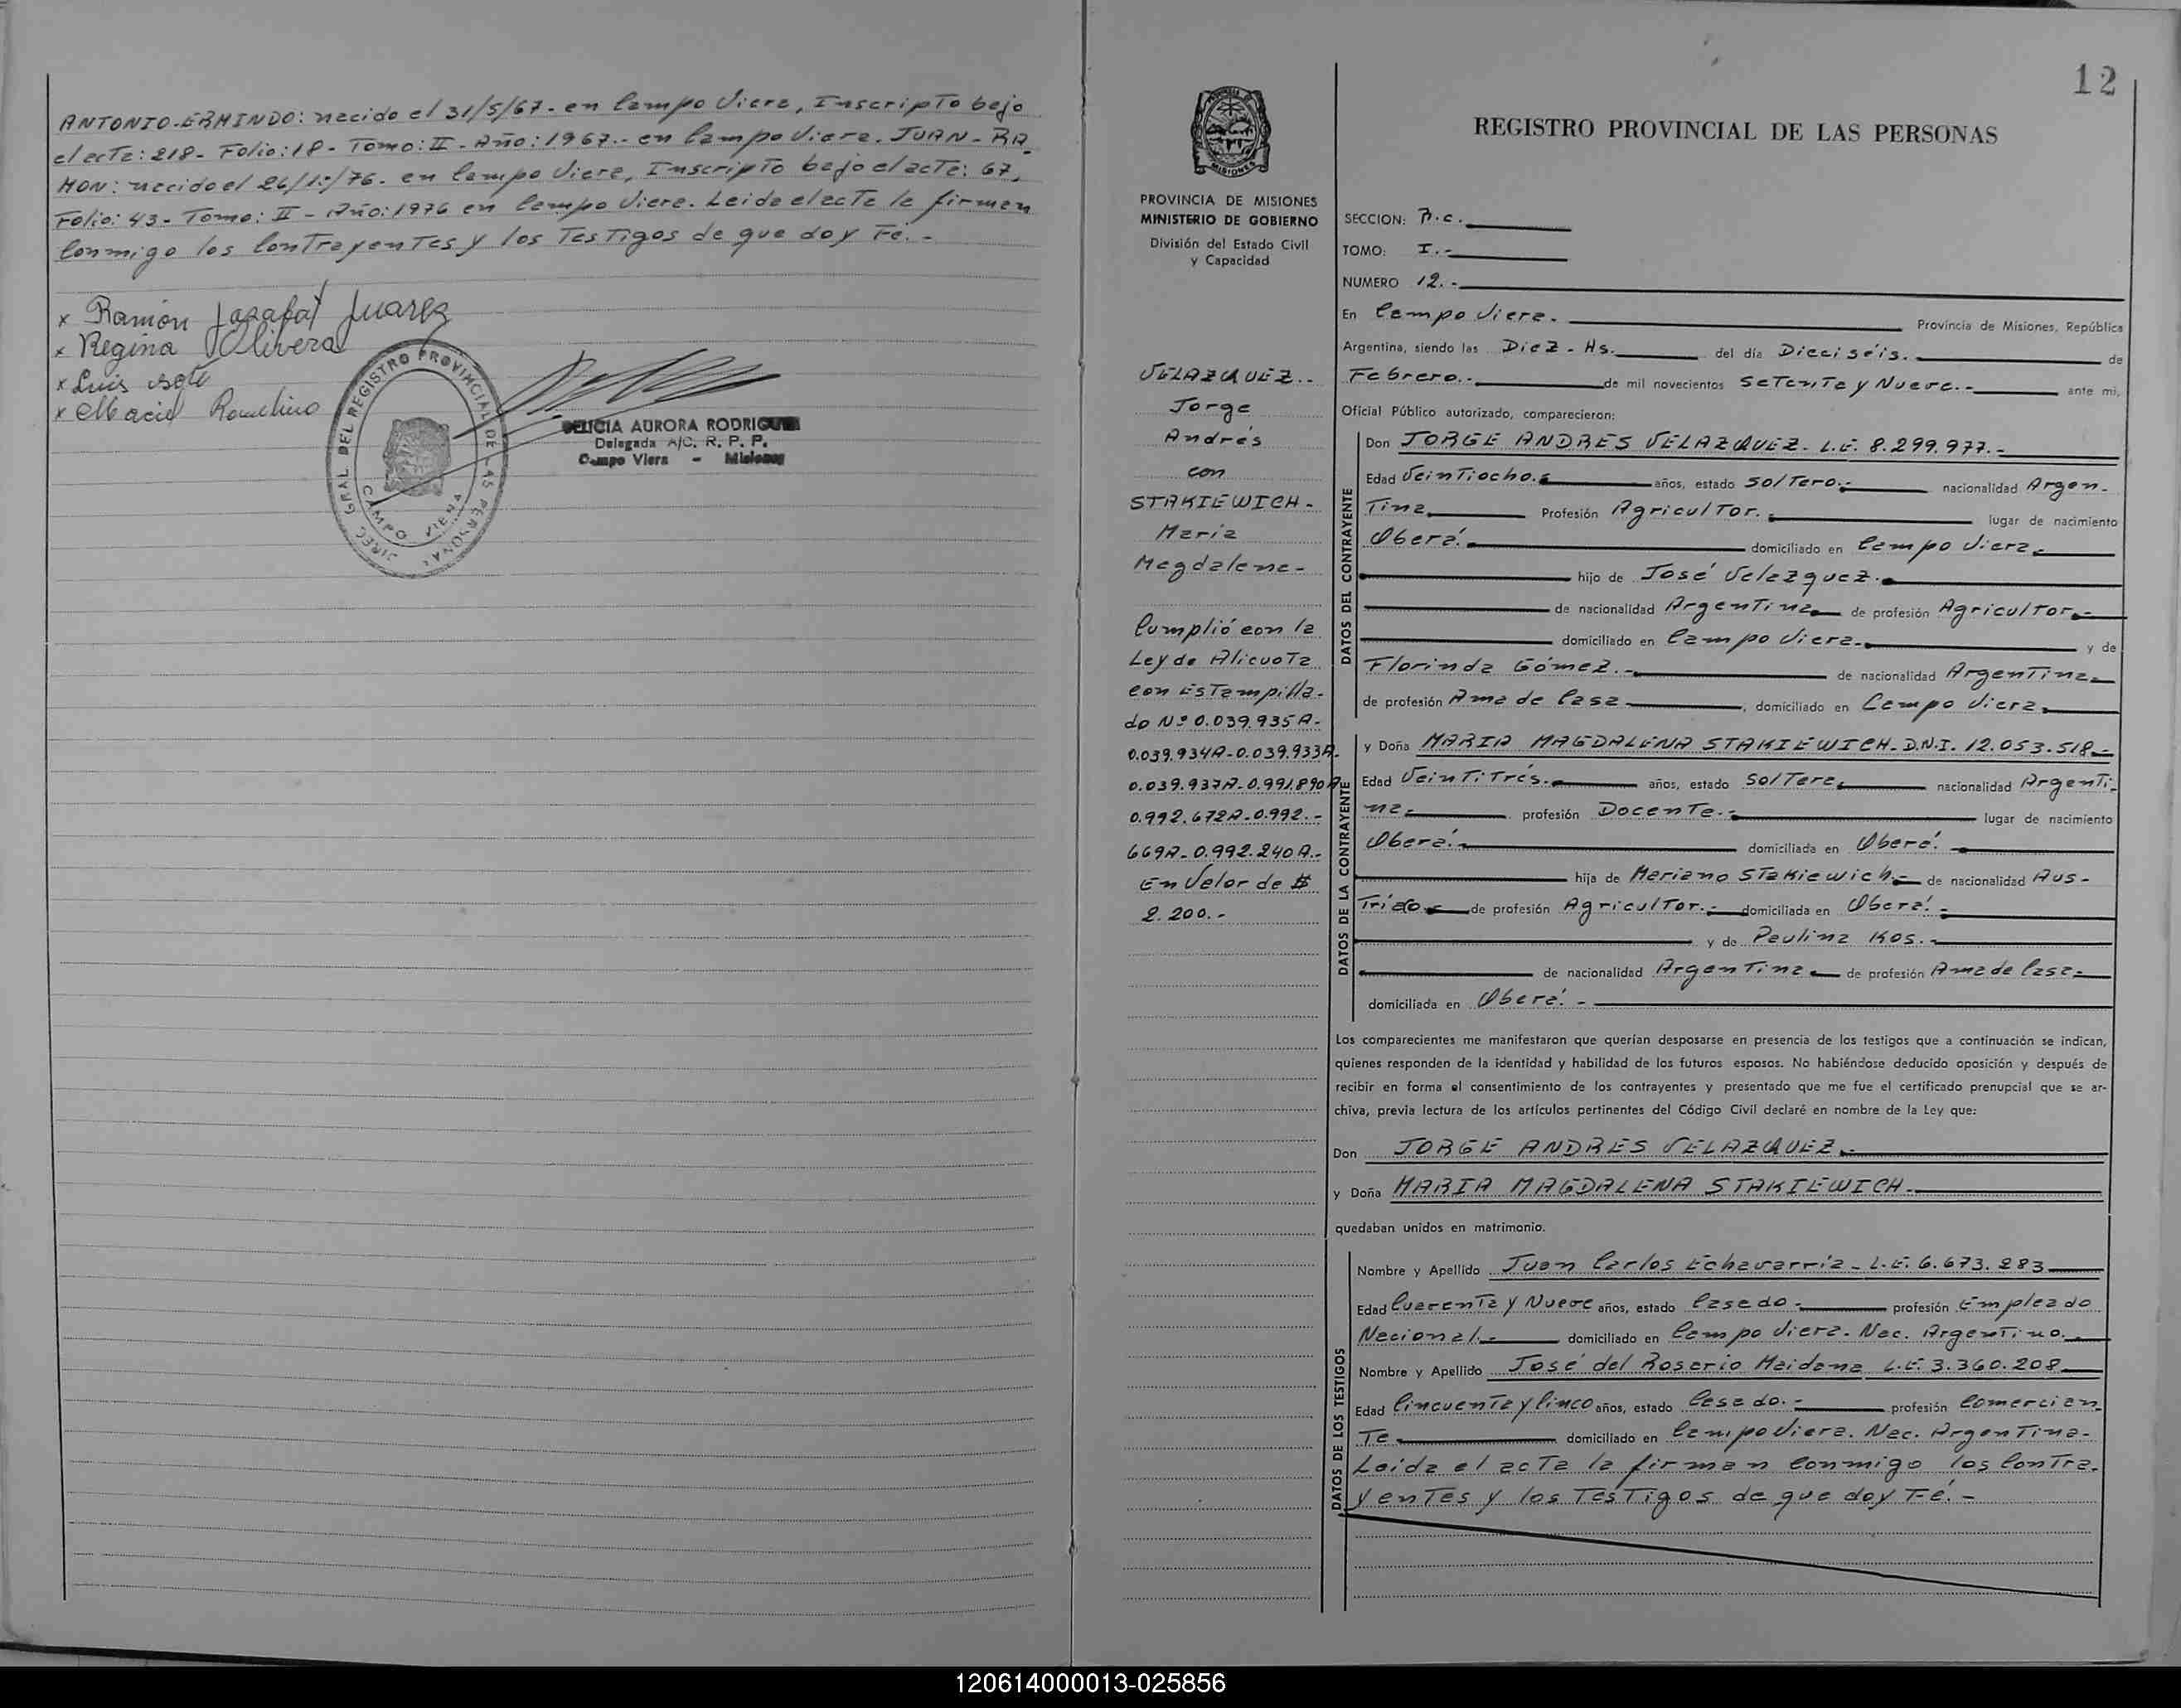 ANTONIO-ERMINDO: nacido el 31/5/67- en Campo Viera, Inscripto bajo
el acta: 218- Folio: 18- Tomo: II- Año: 1967.- en Campo Viera. JUAN-RA_
MON: nacido el 26/1:/76. en Campo Viera, Inscripto bajo el acta: 67,
Folio: 43- Tomo: II- Año: 1976 en Campo Viera. Leida el acta la firman
Conmigo los Contrayentes y los Testigos de que doy Fé.-
x Ramón Jasafat Juarez
x Regina Olivera
x Luis
x Maciel Romelino
DIREC. GRAL. DEL REGISTRO PROVINCIAL DE LAS PERSONAS
CAMPO VIERA
DELICIA AURORA RODRIGUEZ
Delegada A/C. R. P. P.
Campo Viera - Misiones
12
PROVINCIA DE MISIONES
MINISTERIO DE GOBIERNO
División del Estado Civil
y Capacidad
VELAZQUEZ..
Jorge
Andrés
con
STAKIEWICH-
María
Magdalena-
Cumplió con la
Ley de Alicuota
con Estampilla-
do Nº 0.039.935A-
0.039.934A-0.039.933A-
0.039.937A-0.991.890A
0.992.672A-0.992.-
669A-0.992.240A.-
En Valor de $
2.200.-
REGISTRO PROVINCIAL DE LAS PERSONAS
SECCION: A.c.
TOMO: I.-
NUMERO 12.-
En Campo Viera. Provincia de Misiones, República
Argentina, siendo las Diez-Hs. del día Dieciséis. de
Febrero.- de mil novecientos Setenta y Nueve.- ante mi,
Oficial Público autorizado, comparecieron:
DATOS DEL CONTRAYENTE
Don JORGE ANDRES VELAZQUEZ- L.E. 8.299.977.-
Edad Veintiocho. años, estado Soltero.- nacionalidad Argen-
Tina Profesión Agricultor.- lugar de nacimiento
Oberá. domiciliado en Campo Viera
hijo de José Velazquez.
de nacionalidad Argentina de profesión Agricultor.-
domiciliado en Campo Viera. y de
Florinda Gómez.- de nacionalidad Argentina
de profesión Ama de Casa , domiciliado en Campo Viera
DATOS DE LA CONTRAYENTE
y Doña MARIA MAGDALENA STAKIEWICH- D.N.I. 12.053.518-
Edad Veintitrés. años, estado Soltera nacionalidad Argenti-
na. profesión Docente.- lugar de nacimiento
Oberá.- domiciliada en Oberá.
hija de Mariano Stakiewich.- de nacionalidad Aus-
Tríaco de profesión Agricultor.- domiciliada en Oberá.-
y de Paulina Kos.-
de nacionalidad Argentina de profesión Ama de Casa-
domiciliada en Oberá.-
Los comparecientes me manifestaron que querían desposarse en presencia de los testigos que a continuación se indican,
quienes responden de la identidad y habilidad de los futuros esposos. No habiéndose deducido oposición y después de
recibir en forma el consentimiento de los contrayentes y presentado que me fue el certificado prenupcial que se ar-
chiva, previa lectura de los artículos pertinentes del Código Civil declaré en nombre de la Ley que:
Don JORGE ANDRES VELAZQUEZ.-
y Doña MARIA MAGDALENA STAKIEWICH.-
quedaban unidos en matrimonio.
DATOS DE LOS TESTIGOS
Nombre y Apellido Juan Carlos Echavarría- L.E. 6.673.283
Edad Cuarenta y Nueve años, estado Casado- profesión Empleado
Nacional.- domiciliado en Campo Viera. Nac. Argentino.-
Nombre y Apellido José del Rosario Maidana L.E. 3.360.208
Edad Cincuenta y Cinco años, estado Casado.- profesión Comercian_
Te domiciliado en Campo Viera. Nac. Argentina-
Leida el acta la firman Conmigo los Contra-
yentes y los Testigos de que doy Fé.-
120614000013-025856